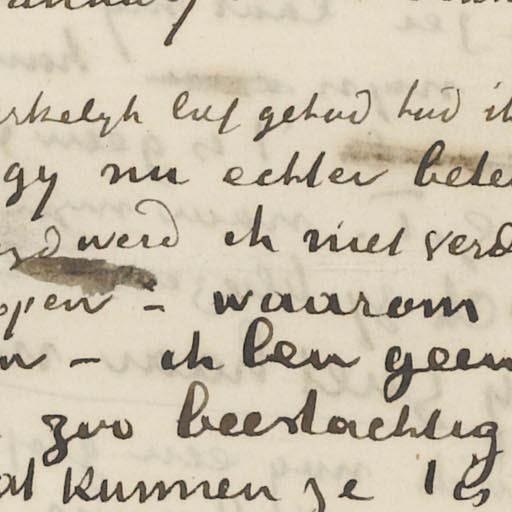 rkelyk lief gehad had ik
gy nu echter bete
werd ik niet verd
open - waarom
n - ik ben geen
zoo beestachtig
at kunnen ze 1 is